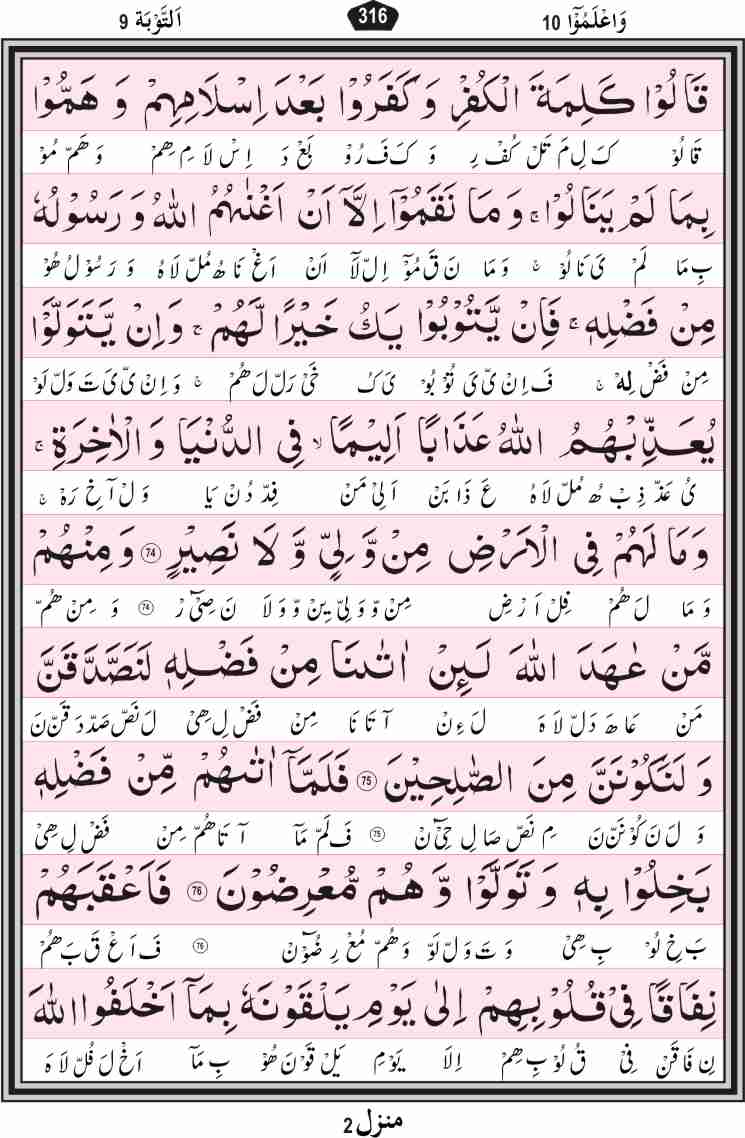 اَلتَّوْبَة 9
316
وَاعْلَمُوْٓا 10
قَالُوْا كَلِمَةَ الْكُفْرِ وَكَفَرُوْا بَعْدَ اِسْلَامِهِمْ وَ هَمُّوْا
قَا لُوْ كَ لِ مَ تَلْ كُفْ رِ وَ كَ فَ رُوْ بَعْ دَ اِسْ لَا مِ هِمْ وَ هَمّ مُوْ
بِمَا لَمْ يَنَالُوْا ۚ وَ مَا نَقَمُوْٓا اِلَّآ اَنْ اَغْنٰىهُمُ اللّٰهُ وَ رَسُوْلُهٗ
بِ مَا لَمْ يَ نَا لُوْ ۚ وَ مَا نَ قَ مُوْٓ اِلّ لَآ اَنْ اَغْ نَا هُ مُلّ لَا هُ وَ رَ سُوْ لُ هُوْ
مِنْ فَضْلِهٖ ۚ فَاِنْ يَّتُوْبُوْا يَكُ خَيْرًا لَّهُمْ ۚ وَاِنْ يَّتَوَلَّوْا
مِنْ فَضْ لِهٖ ۚ فَ اِنْ يَّ يَ تُوْ بُوْ يَ كُ خَيْ رَلّ لَ هُمْ ۚ وَ اِنْ يَّ يَ تَ وَلّ لَوْ
يُعَذِّبْهُمُ اللّٰهُ عَذَابًا اَلِيْمًا ۙ فِى الدُّنْيَا وَالْاٰخِرَةِ ۚ
يُ عَذّ ذِبْ هُ مُلّ لَا هُ عَ ذَا بَنْ اَ لِيْ مَنْ فِدّ دُنْ يَا وَ لْ آ خِ رَهْ ۚ
وَمَا لَهُمْ فِى الْاَرْضِ مِنْ وَّلِيٍّ وَّ لَا نَصِيْرٍ 74 وَ مِنْهُمْ
وَ مَا لَ هُمْ فِلْ اَ رْ ضِ مِنْ وّ وَ لِيّ يِنْ وّ وَ لَا نَ صِيْٓ رْ 74 وَ مِنْ هُمّ
مَّنْ عٰهَدَ اللّٰهَ لَىِٕنْ اٰتٰىنَا مِنْ فَضْلِهٖ لَنَصَّدَّقَنَّ
مَنْ عَا هَ دَلّ لَا هَ لَ ءِنْ آ تَا نَا مِنْ فَضْ لِ هِيْ لَ نَصّ صَدّ دَ قَنّ نَ
وَ لَنَكُوْنَنَّ مِنَ الصّٰلِحِيْنَ 75 فَلَمَّآ اٰتٰىهُمْ مِّنْ فَضْلِهٖ
وَ لَ نَ كُوْ نَنّ نَ مِ نَصّ صَا لِ حِيْٓ نْ 75 فَ لَمّ مَآ آ تَا هُمّ مِنْ فَضْ لِ هِيْ
بَخِلُوْا بِهٖ وَ تَوَلَّوْا وَّ هُمْ مُّعْرِضُوْنَ 76 فَاَعْقَبَهُمْ
بَ خِ لُوْ بِ هِيْ وَ تَ وَلّ لَوْ وَ هُمّ مُعْ رِ ضُوْٓنْ 76 فَ اَ عْ قَ بَ هُمْ
نِفَاقًا فِيْ قُلُوْبِهِمْ اِلٰى يَوْمِ يَلْقَوْنَهٗ بِمَآ اَخْلَفُوا اللّٰهَ
نِ فَا قَنْ فِيْ قُ لُوْ بِ هِمْ اِلَا يَوْ مِ يَلْ قَوْ نَ هُوْ بِ مَآ اَخْ لَ فُلّ لَا هَ
منزل 2